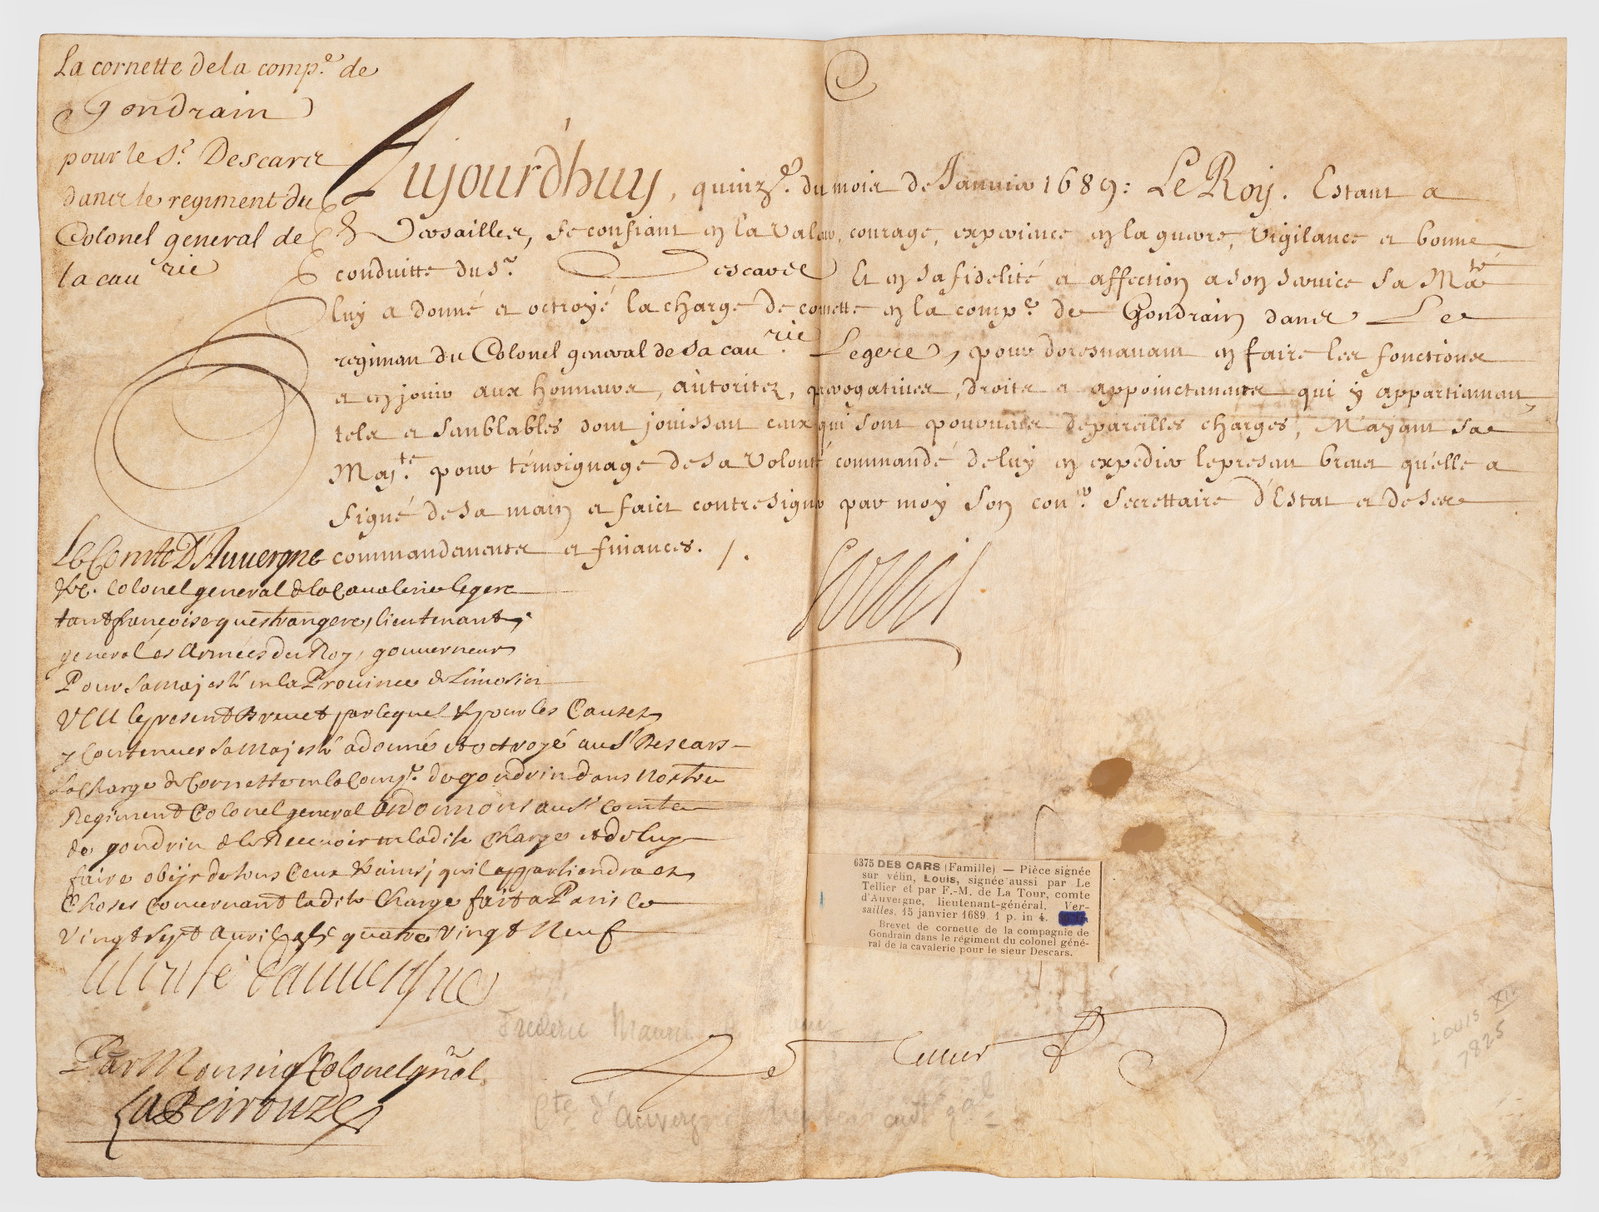 La cornette de la comp.e de
Gondrain
pour le S.r Descars
dans le regiment du
Colonel general de
la cau.rie
Aujourd'huy, quinz.e du mois de Januier 1689: Le Roy. Estant a
Versailles, se confiant en la Valeur, courage, experience en la guerre, Vigilance et bonne
conduitte du S.r Descars Et en sa fidelité et affection a son seruice Sa Ma.té
luy a donné et octroyé la charge de cornette en la comp.e de Gondrain dans Le
regiment du Colonel general de sa cau.rie Legere, pour doresnauant en faire les fonctions
et en jouir aux honneurs, autoritez, prerogatiues, droits et appointements qui y appartiennent,
tels et semblables dont jouissent ceux qui sont pourueus de pareilles charges, M'ayant Sa
Maj.té pour témoignage de sa Volonté commandé de luy en expedier le present breuet qu'elle a
signé de sa main et faict contresigner par moy Son con.er Secrettaire d'Estat et de ses
commandements et finances. /.
Louis
Le Comte D'Auuergne
&c. Colonel general de la Caualerie legere
tant françoise que estrangere, lieutenant
general es Armées du Roy, gouuerneur
Pour sa majesté en la Prouince de Limosin
VEU le present Breuet par lequel & pour les Causes
y Contenues sa Majesté a donné et octroyé au S.r Descars
La Charge de Cornette en la Comp.e de gondrin dans Nostre
Regiment Colonel general Ordonnons au S.r Comte
de gondrin de le Receuoir en ladite Charge et de luy
faire obeyr de tous Ceux & ainsy qu'il appartiendra es
Choses Concernant ladite Charge fait a Paris le
Vingt Sept Auril quatre Vingt Neuf
Le Comte d'auuergne
Par Monseig.r Colonel gñal
LaBeirouze
Le Tellier
6375 DES CARS (Famille) — Pièce signée
sur vélin, Louis, signée aussi par Le
Tellier et par F.-M. de La Tour, comte
d'Auvergne, lieutenant-général. Ver-
sailles, 15 janvier 1689. 1 p. in 4.
Brevet de cornette de la compagnie de
Gondrain dans le régiment du colonel géné-
ral de la cavalerie pour le sieur Descars.
Frederic Maurice
Cte d'auvergne
Louis XIV
7825